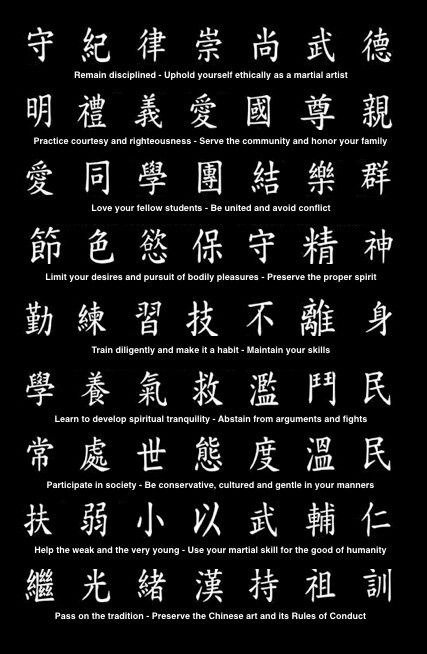 守紀律崇尚武德
Remain disciplined - Uphold yourself ethically as a martial artist
明禮義愛國尊親
Practice courtesy and righteousness - Serve the community and honor your family
愛同學團結樂群
Love your fellow students - Be united and avoid conflict
節色慾保守精神
Limit your desires and pursuit of bodily pleasures - Preserve the proper spirit
勤練習技不離身
Train diligently and make it a habit - Maintain your skills
學養氣救濫鬥民
Learn to develop spiritual tranquility - Abstain from arguments and fights
常處世態度溫民
Participate in society - Be conservative, cultured and gentle in your manners
扶弱小以武輔仁
Help the weak and the very young - Use your martial skill for the good of humanity
繼光緒漢持祖訓
Pass on the tradition - Preserve the Chinese art and its Rules of Conduct